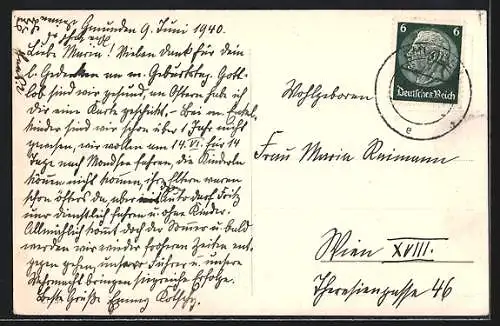 Gmunden 9. Juni 1940.
Liebe Maria! Vielen Dank für dein
l. Gedenken an m. Geburtstag. Gott-
lob sind wir gesund, an Ostern habe ich
dir eine Karte geschickt. – Bei m. Enkel-
kinder sind wir schon über 1 Jahr nicht
gewesen, wir wollen am 14. VI. für 14
Tage nach Mondsee fahren, die Kinderln
können nicht kommen, ihre Eltern waren
schon öfters da, aber Auto darf Fritz
nur dienstlich fahren u. ohne Kinder.
Allmählich kommt doch der Sommer u. bald
werden wir wieder frohere Zeiten ent-
gegen gehen, unser Führer u. unsere
Wehrmacht bringen siegreiche Erfolge.
Beste Grüße Emmy
6 6
Deutsches Reich
Wohlgeboren
Frau Maria Reimann
Wien XVIII.
Theresiengasse 46